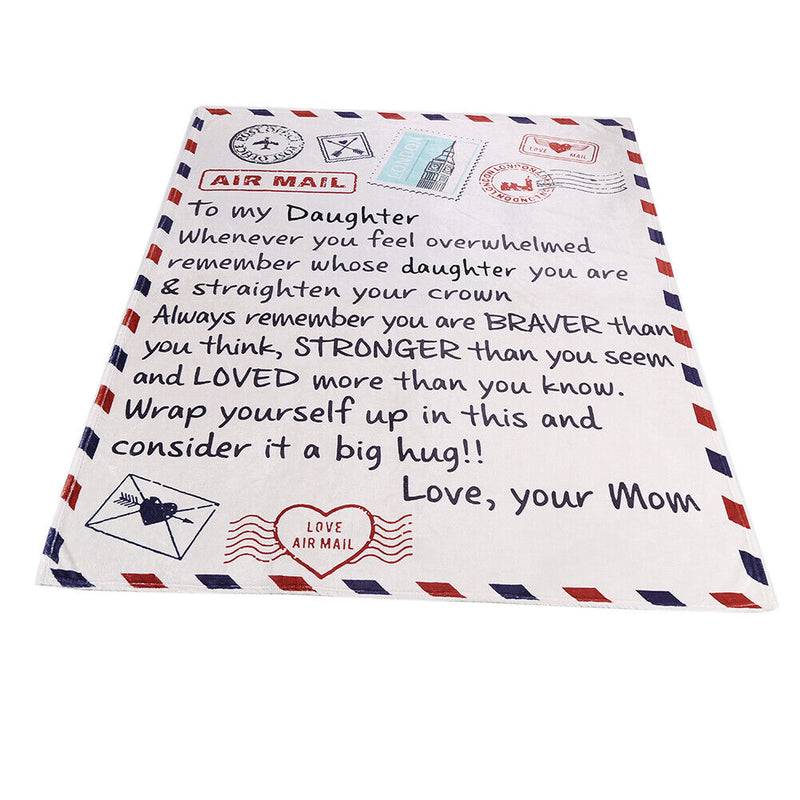 POST OFFICE POST OFFICE
LONDON
LOVE MAIL
LONDON LONDON LONDON
AIR MAIL
To my Daughter
Whenever you feel overwhelmed
remember whose daughter you are
& straighten your crown
Always remember you are BRAVER than
you think, STRONGER than you seem
and LOVED more than you know.
Wrap yourself up in this and
consider it a big hug!!
Love, your Mom
LOVE
AIR MAIL